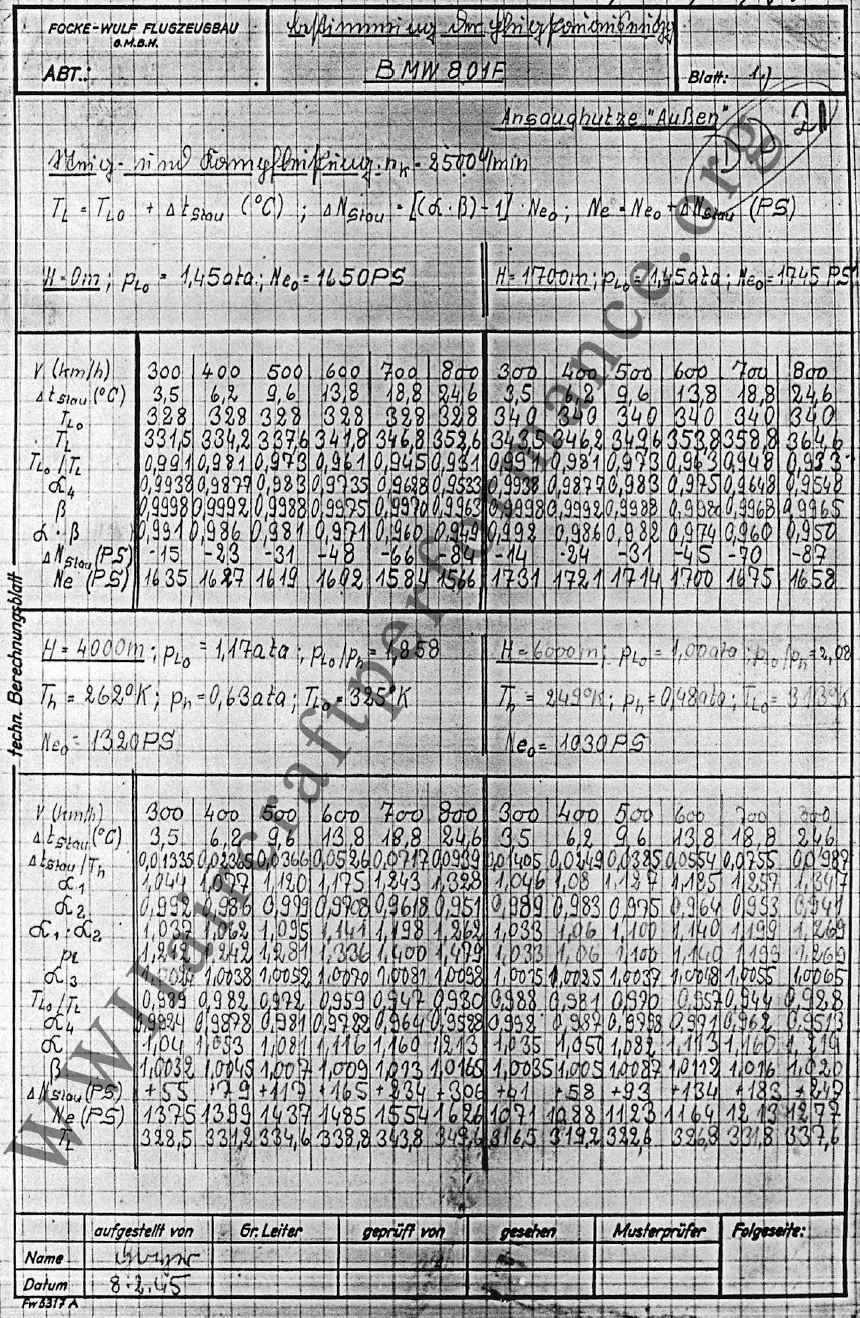 FOCKE-WULF FLUGZEUGBAU
G.M.B.H.
ABT.:
Bestimmung der
BMW 801F
Blatt: 1.)
Ansaughutze "Außen"
21
Steig- und Kampfleistung: nk = 2500 U/min
TL = TLo + Δt Stau (°C) ; ΔN Stau = [(α·β)-1] · Neo ; Ne = Neo + ΔN Stau (PS)
H=0m ; pLo = 1,45ata ; Neo = 1650PS
H=1700m ; pLo = 1,45ata ; Neo = 1745 PS
V (km/h) 300 400 500 600 700 800 300 400 500 600 700 800
Δt Stau (°C) 3,5 6,2 9,6 13,8 18,8 24,6 3,5 6,2 9,6 13,8 18,8 24,6
TLo 328 328 328 328 328 328 340 340 340 340 340 340
TL 331,5 334,2 337,6 341,8 346,8 352,6 343,5 346,2 349,6 353,8 358,8 364,6
TLo/TL 0,991 0,981 0,973 0,961 0,945 0,931 0,991 0,981 0,973 0,963 0,948 0,933
α4 0,9938 0,9877 0,983 0,9735 0,9628 0,9533 0,9938 0,9877 0,983 0,975 0,9648 0,9548
β 0,9998 0,9992 0,9988 0,9975 0,9970 0,9963 0,9998 0,9992 0,9988 0,9980 0,9968 0,9965
α·β 0,991 0,986 0,981 0,971 0,960 0,949 0,992 0,986 0,982 0,974 0,960 0,950
ΔN Stau (PS) -15 -23 -31 -48 -66 -84 -14 -24 -31 -45 -70 -87
Ne (PS) 1635 1627 1619 1602 1584 1566 1731 1721 1714 1700 1675 1658
H=4000m ; pLo = 1,17ata ; pLo/ph = 1,858
H=6000m ; pLo = 1,00ata ; pLo/ph = 2,08
Th = 262°K ; ph = 0,63ata ; TLo = 325°K
Th = 249°K ; ph = 0,48ata ; TLo = 313°K
Neo = 1320PS
Neo = 1030PS
V (km/h) 300 400 500 600 700 800 300 400 500 600 700 800
Δt Stau (°C) 3,5 6,2 9,6 13,8 18,8 24,6 3,5 6,2 9,6 13,8 18,8 24,6
Δt Stau/Th 0,01335 0,02365 0,0366 0,0526 0,0717 0,0939 0,01405 0,0249 0,0385 0,0554 0,0755 0,0987
α1 1,044 1,077 1,120 1,175 1,243 1,328 1,046 1,08 1,127 1,185 1,257 1,347
α2 0,992 0,986 0,979 0,9708 0,9618 0,951 0,989 0,983 0,975 0,964 0,953 0,941
α1·α2 1,037 1,062 1,095 1,141 1,198 1,262 1,033 1,06 1,100 1,140 1,199 1,269
pL 1,212 1,242 1,281 1,336 1,400 1,479 1,033 1,06 1,100 1,140 1,199 1,269
α3 1,0024 1,0038 1,0052 1,0070 1,0081 1,0098 1,0015 1,0025 1,0037 1,0048 1,0055 1,0065
TLo/TL 0,989 0,982 0,972 0,959 0,947 0,930 0,988 0,981 0,970 0,957 0,944 0,928
α4 0,9924 0,9878 0,981 0,9722 0,964 0,9528 0,992 0,987 0,9798 0,971 0,962 0,9513
α 1,04 1,053 1,081 1,116 1,160 1,213 1,035 1,050 1,082 1,113 1,160 1,219
β 1,0032 1,0045 1,007 1,009 1,013 1,0165 1,0035 1,005 1,0087 1,0122 1,016 1,020
ΔN Stau (PS) +55 +79 +117 +165 +234 +306 +41 +58 +93 +134 +183 +247
Ne (PS) 1375 1399 1437 1485 1554 1626 1071 1088 1123 1164 1213 1277
TL 328,5 331,2 334,6 338,8 343,8 349,6 316,5 319,2 322,6 326,8 331,8 337,6
techn. Berechnungsblatt
www.WWIIaircraftperformance.org
aufgestellt von Gr. Leiter geprüft von gesehen Musterprüfer Folgeseite:
Name
Datum 8.2.45
Fw 5317 A